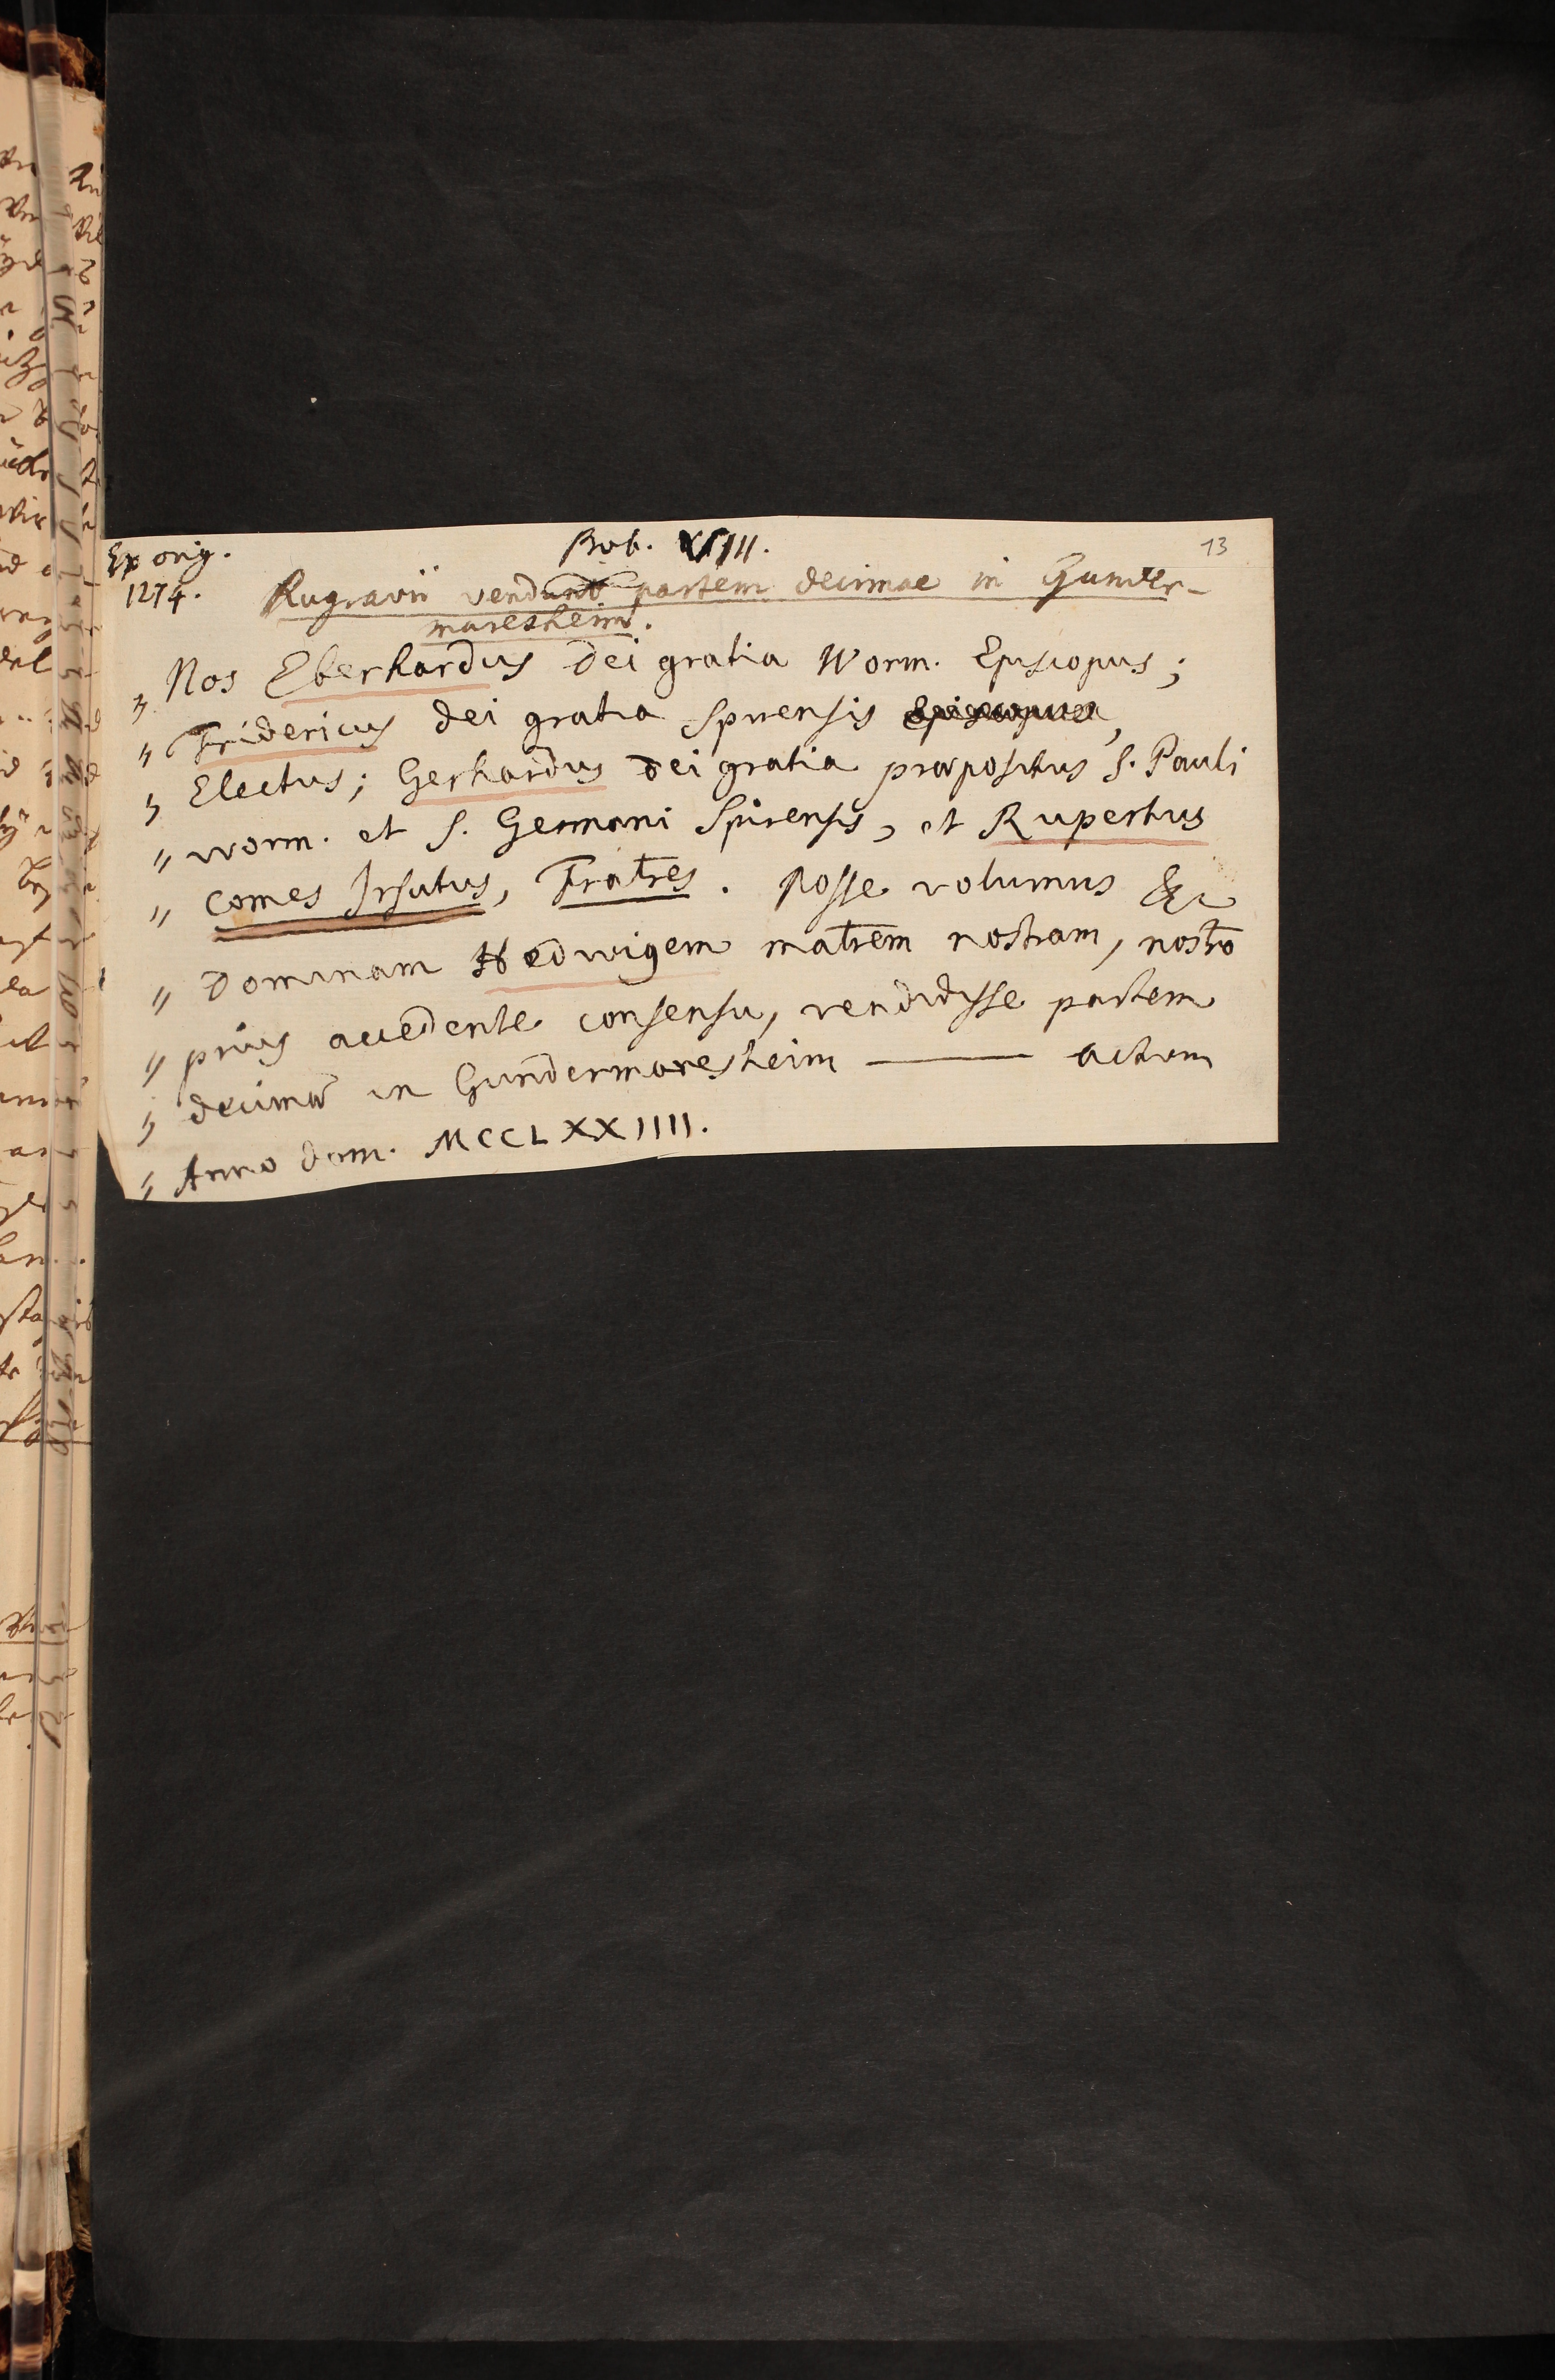 13
Ex orig.
Bob. XVIII.
1274.
Rugravii vendunt partem decimae in Gunder-
maresheim.
„ Nos Eberhardus Dei gratia Worm. Episcopus;
„ Fridericus dei gratia Spirensis Episcopus,
„ Electus; Gerhardus dei gratia præpositus S. Pauli
„ worm. et S. Germani Spirensis, et Rupertus
„ comes Irsutus, Fratres. Nosse volumus &c
„ Dominam Hedwigem matrem nostram, nostro
„ prius accedente consensu, vendidisse partem
„ decimæ in Gundermaresheim — actum
„ Anno dom. MCCLXXIIII.